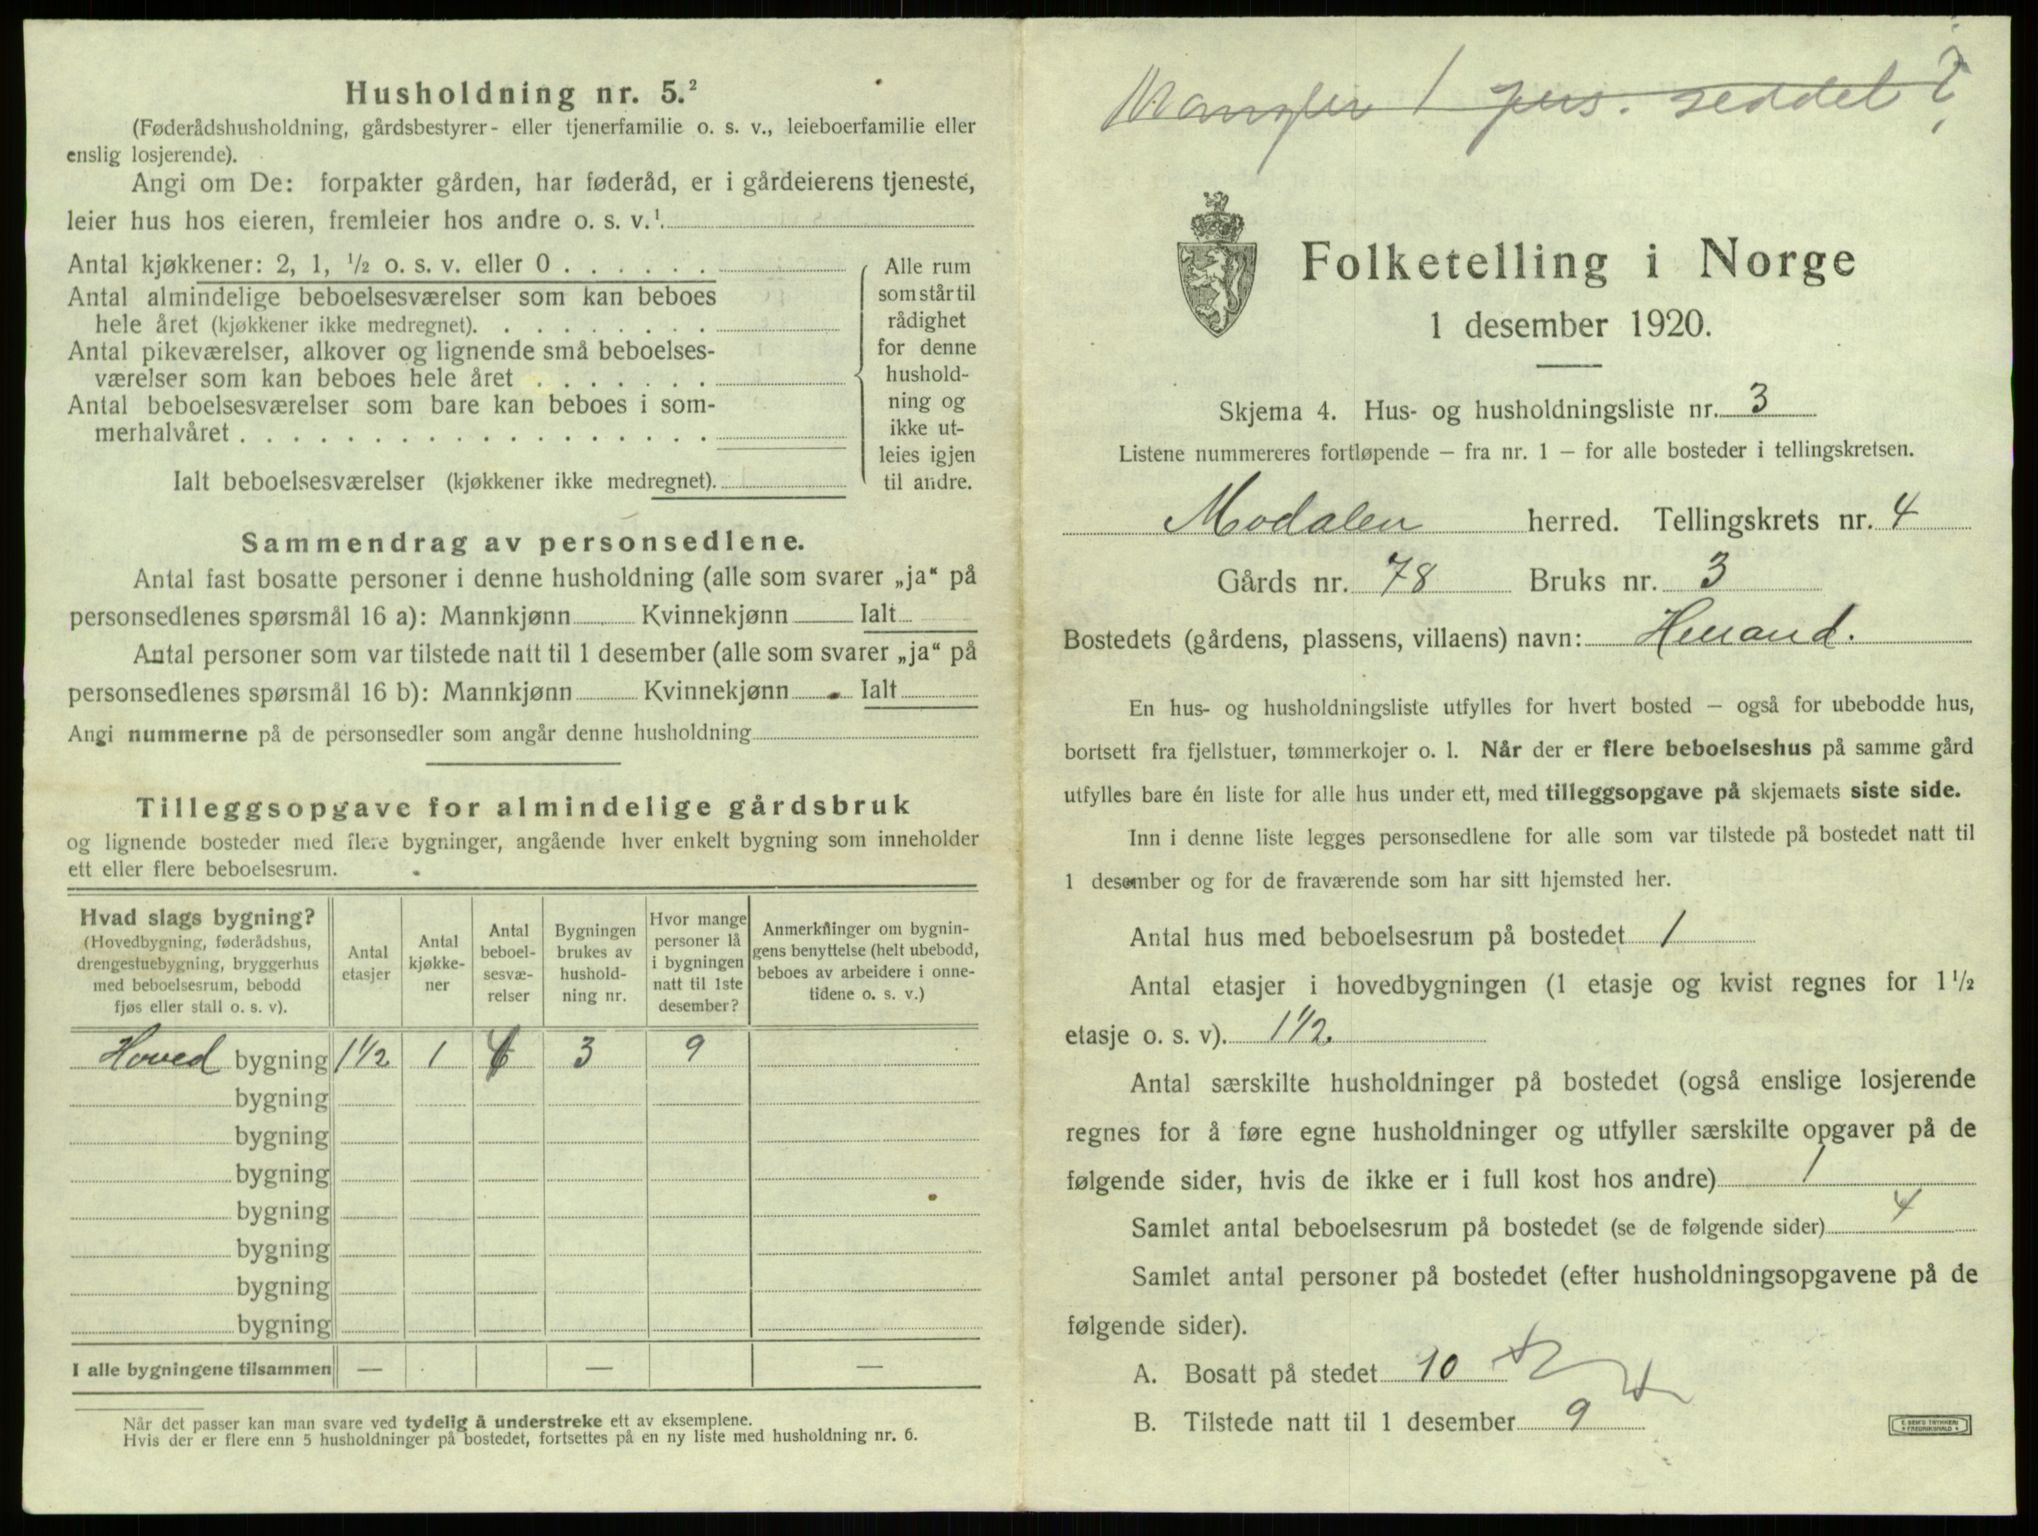 Husholdning nr. 5.²
(Føderådshusholdning, gårdsbestyrer- eller tjenerfamilie o. s. v., leieboerfamilie eller
enslig losjerende).
Angi om De: forpakter gården, har føderåd, er i gårdeierens tjeneste,
leier hus hos eieren, fremleier hos andre o. s. v.¹.
Antal kjøkkener: 2, 1, ½ o. s. v. eller 0 . . . . . .
Antal almindelige beboelsesværelser som kan beboes
hele året (kjøkkener ikke medregnet). . . . . . . . .
Antal pikeværelser, alkover og lignende små beboelses-
værelser som kan beboes hele året . . . . . . .
Antal beboelsesværelser som bare kan beboes i som-
merhalvåret . . . . . . . . . . . . . . . . . .
Ialt beboelsesværelser (kjøkkener ikke medregnet).
Alle rum
som står til
rådighet
for denne
hushold-
ning og
ikke ut-
leies igjen
til andre.
Sammendrag av personsedlene.
Antal fast bosatte personer i denne husholdning (alle som svarer „ja“ på
personsedlenes spørsmål 16 a): Mannkjønn Kvinnekjønn Ialt
Antal personer som var tilstede natt til 1 desember (alle som svarer „ja“ på
personsedlenes spørsmål 16 b): Mannkjønn Kvinnekjønn Ialt
Angi nummerne på de personsedler som angår denne husholdning
Tilleggsopgave for almindelige gårdsbruk
og lignende bosteder med flere bygninger, angående hver enkelt bygning som inneholder
ett eller flere beboelsesrum.
Hvad slags bygning?
(Hovedbygning, føderådshus,
drengestuebygning, bryggerhus
med beboelsesrum, bebodd
fjøs eller stall o. s. v).
Antal
etasjer
Antal
kjøkke-
ner
Antal
beboel-
sesvæ-
relser
Bygningen
brukes av
hushold-
ning nr.
Hvor mange
personer lå
i bygningen
natt til 1ste
desember?
Anmerkninger om bygnin-
gens benyttelse (helt ubebodd,
beboes av arbeidere i onne-
tidene o. s. v.)
Hoved bygning 1½ 1 3 9
bygning
bygning
bygning
bygning
bygning
bygning
bygning
I alle bygningene tilsammen — — —
Når det passer kan man svare ved tydelig å understreke ett av eksemplene.
Hvis der er flere enn 5 husholdninger på bostedet, fortsettes på en ny liste med husholdning nr. 6.
Mangler 1 pers. seddel?
Folketelling i Norge
1 desember 1920.
Skjema 4. Hus- og husholdningsliste nr. 3
Listene nummereres fortløpende – fra nr. 1 – for alle bosteder i tellingskretsen.
Modalen herred. Tellingskrets nr. 4
Gårds nr. 78 Bruks nr. 3
Bostedets (gårdens, plassens, villaens) navn:
En hus- og husholdningsliste utfylles for hvert bosted – også for ubebodde hus,
bortsett fra fjellstuer, tømmerkojer o. l. Når der er flere beboelseshus på samme gård
utfylles bare én liste for alle hus under ett, med tilleggsopgave på skjemaets siste side.
Inn i denne liste legges personsedlene for alle som var tilstede på bostedet natt til
1 desember og for de fraværende som har sitt hjemsted her.
Antal hus med beboelsesrum på bostedet 1
Antal etasjer i hovedbygningen (1 etasje og kvist regnes for 1½
etasje o. s. v). 1½.
Antal særskilte husholdninger på bostedet (også enslige losjerende
regnes for å føre egne husholdninger og utfyller særskilte opgaver på de
følgende sider, hvis de ikke er i full kost hos andre) 1
Samlet antal beboelsesrum på bostedet (se de følgende sider) 4
Samlet antal personer på bostedet (efter husholdningsopgavene på de
følgende sider).
A. Bosatt på stedet 10
B. Tilstede natt til 1 desember 9